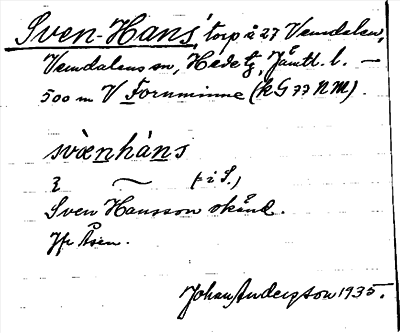 Sven-Hans, torp å 27 Vemdalen,
Vemdalens sn, Hede tg, Jämtl. l. —
500 m V Fornminne (kG 77 NM).
svæ̀nhàns
ʒ ~ (÷ i S.)
Sven Hansson okänd.
Jfr Åsen.
Johan Andersson 1935.